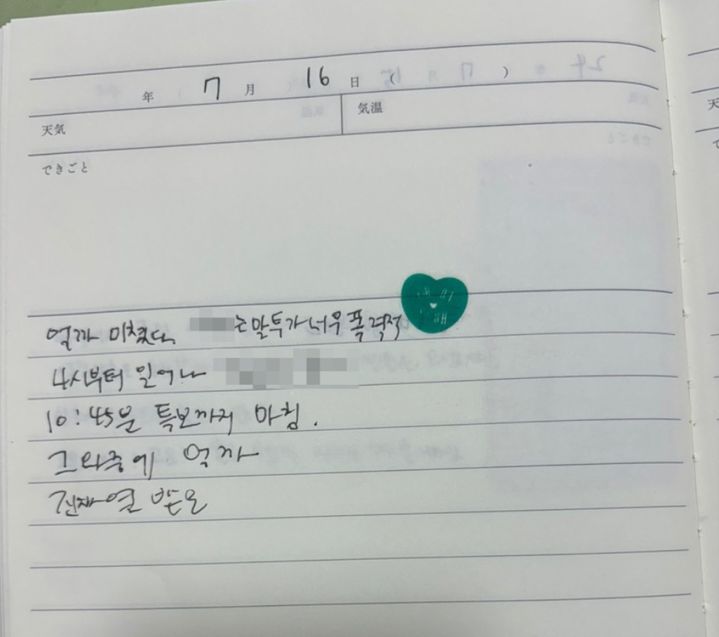 年 7 月 16 日 ( )
天気 気温
できごと
억까 미쳤다 는말투가너무폭력적
4시부터 일어나
10:45분 특보까지 마침.
그와중에 억까
진짜열 받음